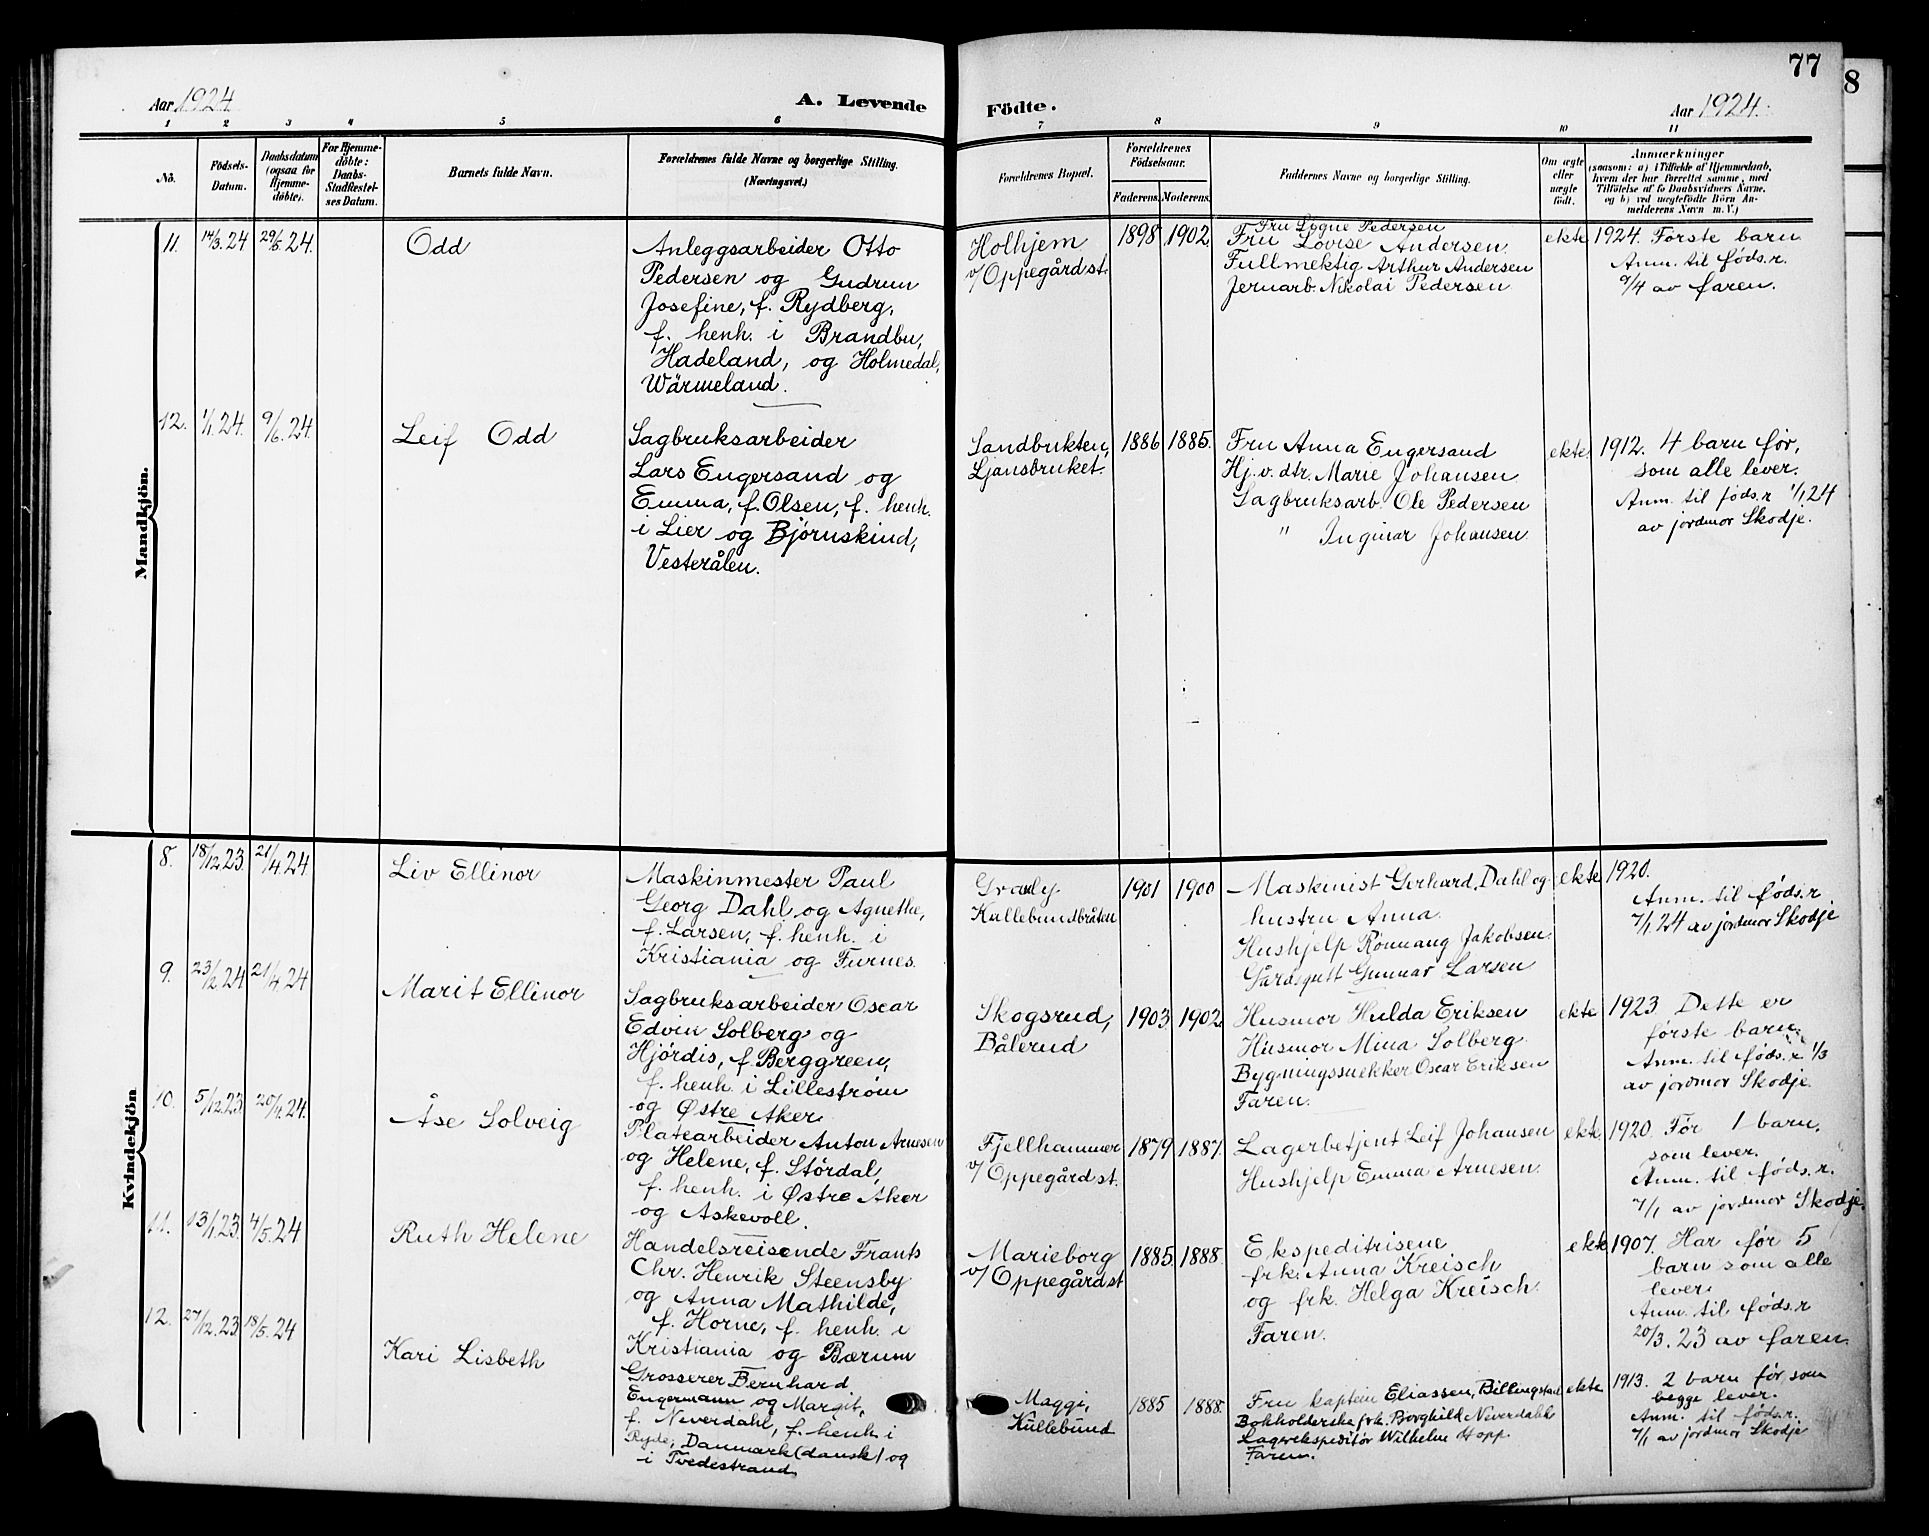 77
8
Aar 1924
A. Levende
Födte.
Aar 1924.
1 2 3 4 5 6 7 8 9 10 11
No.
Födsels-
Datum.
Daabsdatum
(ogsaa for
Hjemme-
döbte).
For Hjemme-
döbte:
Daabs-
Stadfæstel-
ses Datum.
Barnets fulde Navn.
Forældrenes fulde Navne og borgerlige Stilling.
(Næringsvei.)
Forældrenes Bopæl.
Forældrenes
Födselsaar.
Faderens. Moderens.
Faddernes Navne og borgerlige Stilling.
Om ægte
eller
uægte
födt.
Anmærkninger
(saasom: a) i Tilfælde af Hjemmedaab,
hvem der har forrettet samme, med
Tilföielse af to Daabsvidners Navne,
og b) ved uægtefödte Börn An-
melderens Navn m. V.)
Mandkjön.
11. 14/3. 24 29/5 24.
Odd
Anleggsarbeider Otto
Pedersen og Gudrun
Josefine, f. Rydberg,
f. henh. i Brandbu,
Hadeland, og Holmedal,
Wärmeland.
Holhjem
v/Oppegård st.
1898 1902
Fru Logne Pedersen
Fru Lovise Andersen
Fullmektig Arthur Andersen
Jernarb. Nikolai Pedersen
ekte
1924. Første barn
Anm. til føds.r.
9/4 av faren.
12. 1/1. 24. 9/6. 24.
Leif Odd
Sagbruksarbeider
Lars Engersand og
Emma, f. Olsen, f. henh.
i Lier og Bjørnskind,
Vesterålen.
Sandbukten,
Ljansbruket.
1886 1885.
Fru Anna Engersand
Hj.v. dtr. Marie Johansen
Sagbruksarb. Ole Pedersen
" Ingmar Johansen
ekte.
1912. 4 barn før,
som alle lever.
Anm. til føds.r 1/1 24
av jordmor Skodje.
Kvindekjön
8. 18/12. 23. 21/4. 24
Liv Ellinor
Maskinmester Paul
Georg Dahl og Agnethe,
f. Larsen, f. henh. i
Kristiania og Furnes.
Kullebundbråten
1901 1900
Maskinist Gerhard Dahl og
hustru Anna.
Hushjelp Rønnaug Jakobsen.
Gårdsgutt Gunnar Larsen
ekte
1920.
Anm. til føds.r
7/1 24 av jordmor Skodje
9. 23/2. 24 21/4. 24
Marit Ellinor
Sagbruksarbeider Oscar
Edvin Solberg og
Hjørdis, f. Berggreen,
f. henh. i Lillestrøm
og Østre Aker
Skogsrud,
Bålerud
1903 1902.
Husmor Hulda Eriksen
Husmor Mina Solberg.
Bygningssnekker Oscar Eriksen
Faren.
ekte
1923. Dette er
første barn.
Anm. til føds.r. 1/3
av jordmor Skodje.
10. 5/12. 23.
Åse Solveig
Platearbeider Anton Arnesen
og Helene, f. Stördal,
f. henh. i Østre Aker
og Askevoll.
Fjellhammer
v/Oppegård st.
1879 1887.
Lagerbetjent Leif Johansen
Hushjelp Emma Arnesen.
ekte.
1920. Før 1 barn,
som lever.
Anm. til føds.r.
7/1 av jordmor Skodje.
11. 13/1. 23. 4/5. 24
Ruth Helene
Handelsreisende Frants
Chr. Henrik Steensby
og Anna Mathilde,
f. Horne, f. henh. i
Kristiania og Bærum
Marieborg
v/Oppegård st
1885. 1888.
Ekspeditrisene
frk. Anna Kreisch
og frk. Helga Kreisch.
Faren.
ekte
1907. Har før 5
barn som alle
lever.
Anm. til føds.r
20/3. 23 av faren.
12. 27/12. 23. 18/5. 24
Kari Lisbeth
Grosserer Bernhard
Engermann og Margit,
f. Neverdahl, f. henh. i
Ryde, Danmark (dansk) og
i Tvedestrand
Maggi,
Kullebund
1885 1888.
Fru kaptein Eliassen, Billingstad
Bokholderske frk. Borghild Neverdahl
Lagerekspeditør Wilhelm Hopp
Faren.
ekte
1913. 2 barn før, som
begge lever.
Anm. til føds.r.
7/1 av jordmor Skodje